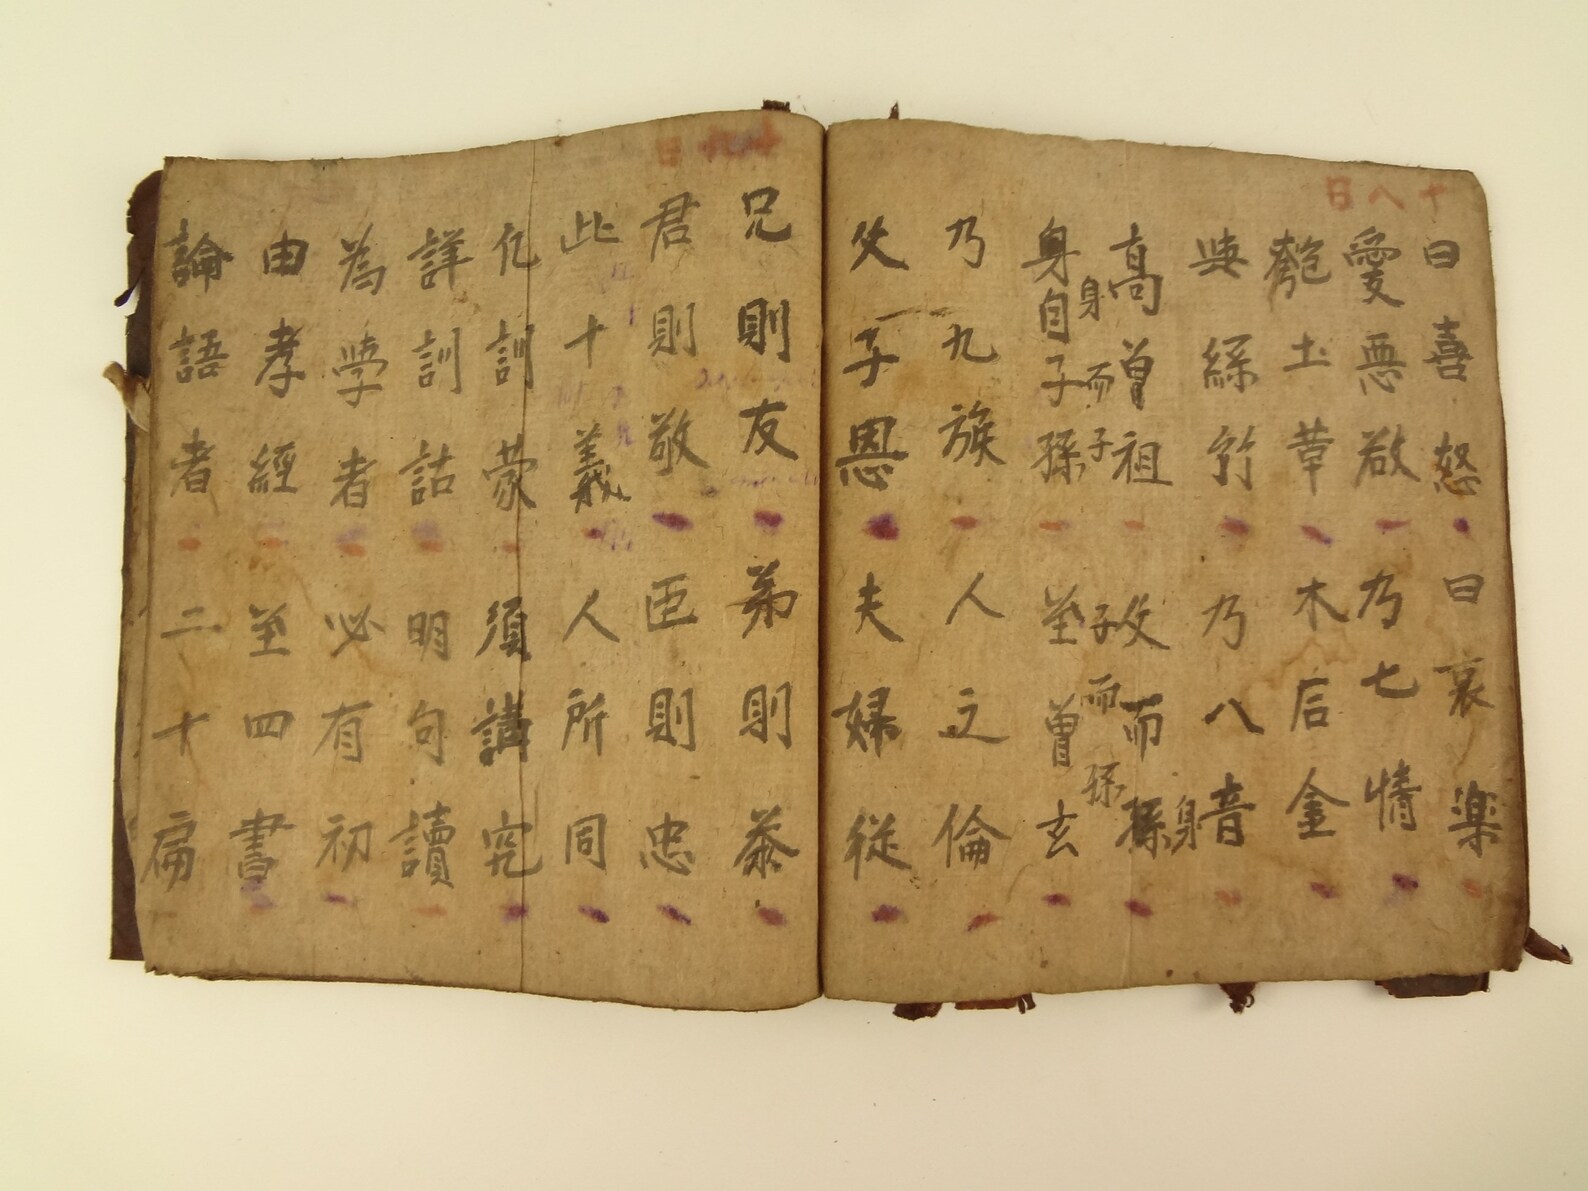 十八日
曰喜怒曰哀楽
愛悪欲乃七情
匏土革木后金
與絲竹乃八音
高曾祖父而孫身
身而子子而孫
身自子孫至曾玄
乃九族人之倫
父子恩夫婦從
十九日
兄則友弟則恭
君則敬臣則忠
此十義人所同
凡訓蒙須講究
詳訓詁明句讀
為學者必有初
由孝經至四書
論語者二十扁